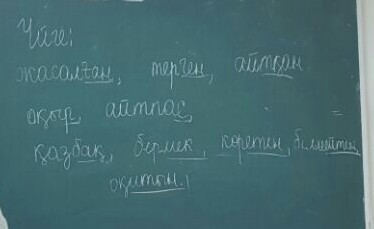 Үйге:
жасалған, терген, айтқан
оқыр, айтпас
қазбақ, бермек, көретін, білмейтін
оқитын.